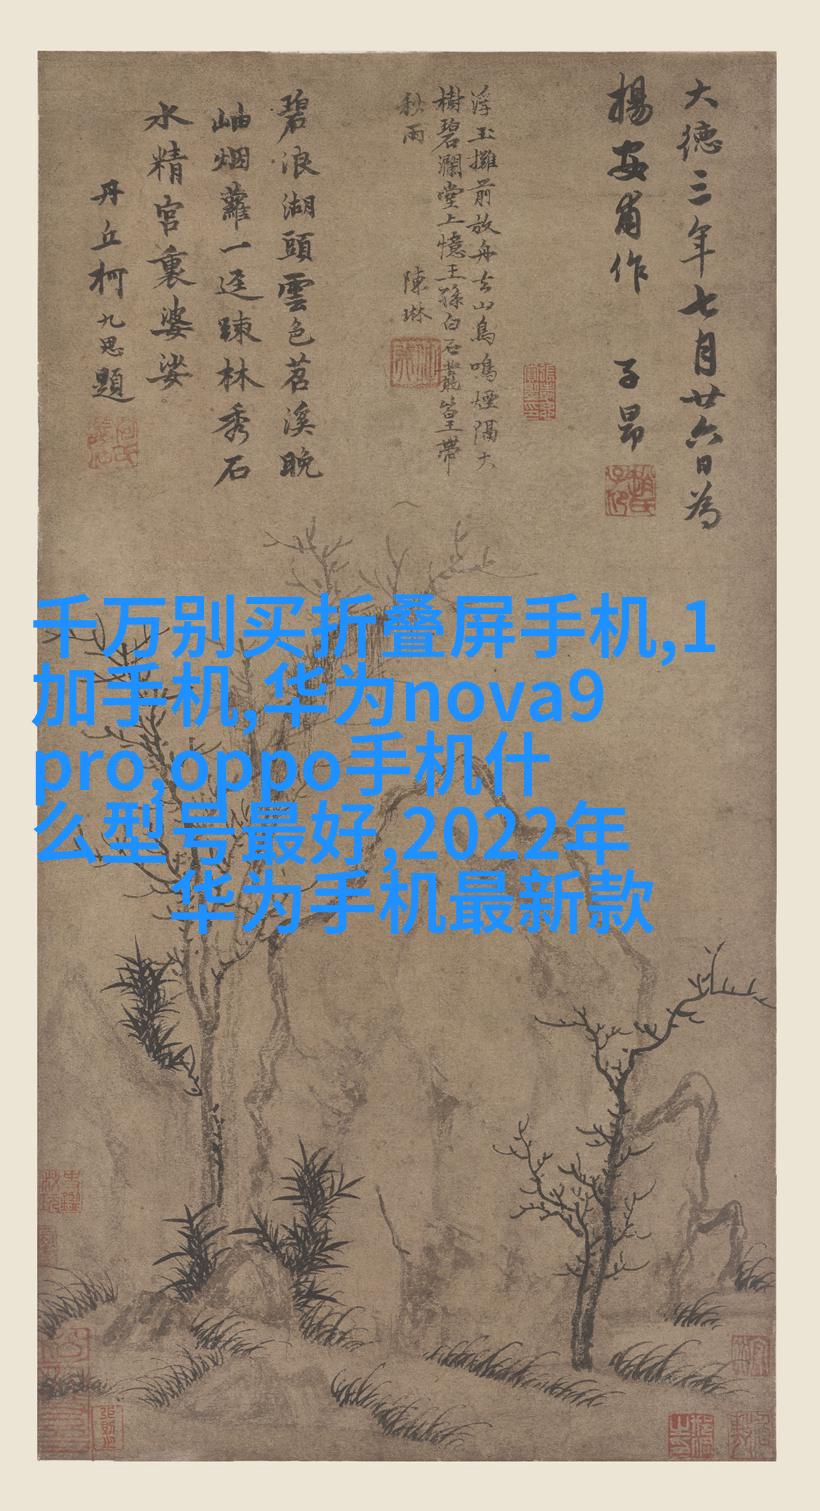 大德三年七月廿六日為
楊安甫作 子昂
浮玉攤前放舟去山鳥鳴煙隔大
樹碧瀾堂上憶王孫白石叢篁帶
秋雨 陳琳
碧浪湖頭雲色苕溪晚
岫烟蘿一逕踈林秀石
水精宮裏婆娑
丹丘柯九思題
千万别买折叠屏手机,1
加手机,华为nova9
pro,oppo手机什
么型号最好,2022年
华为手机最新款